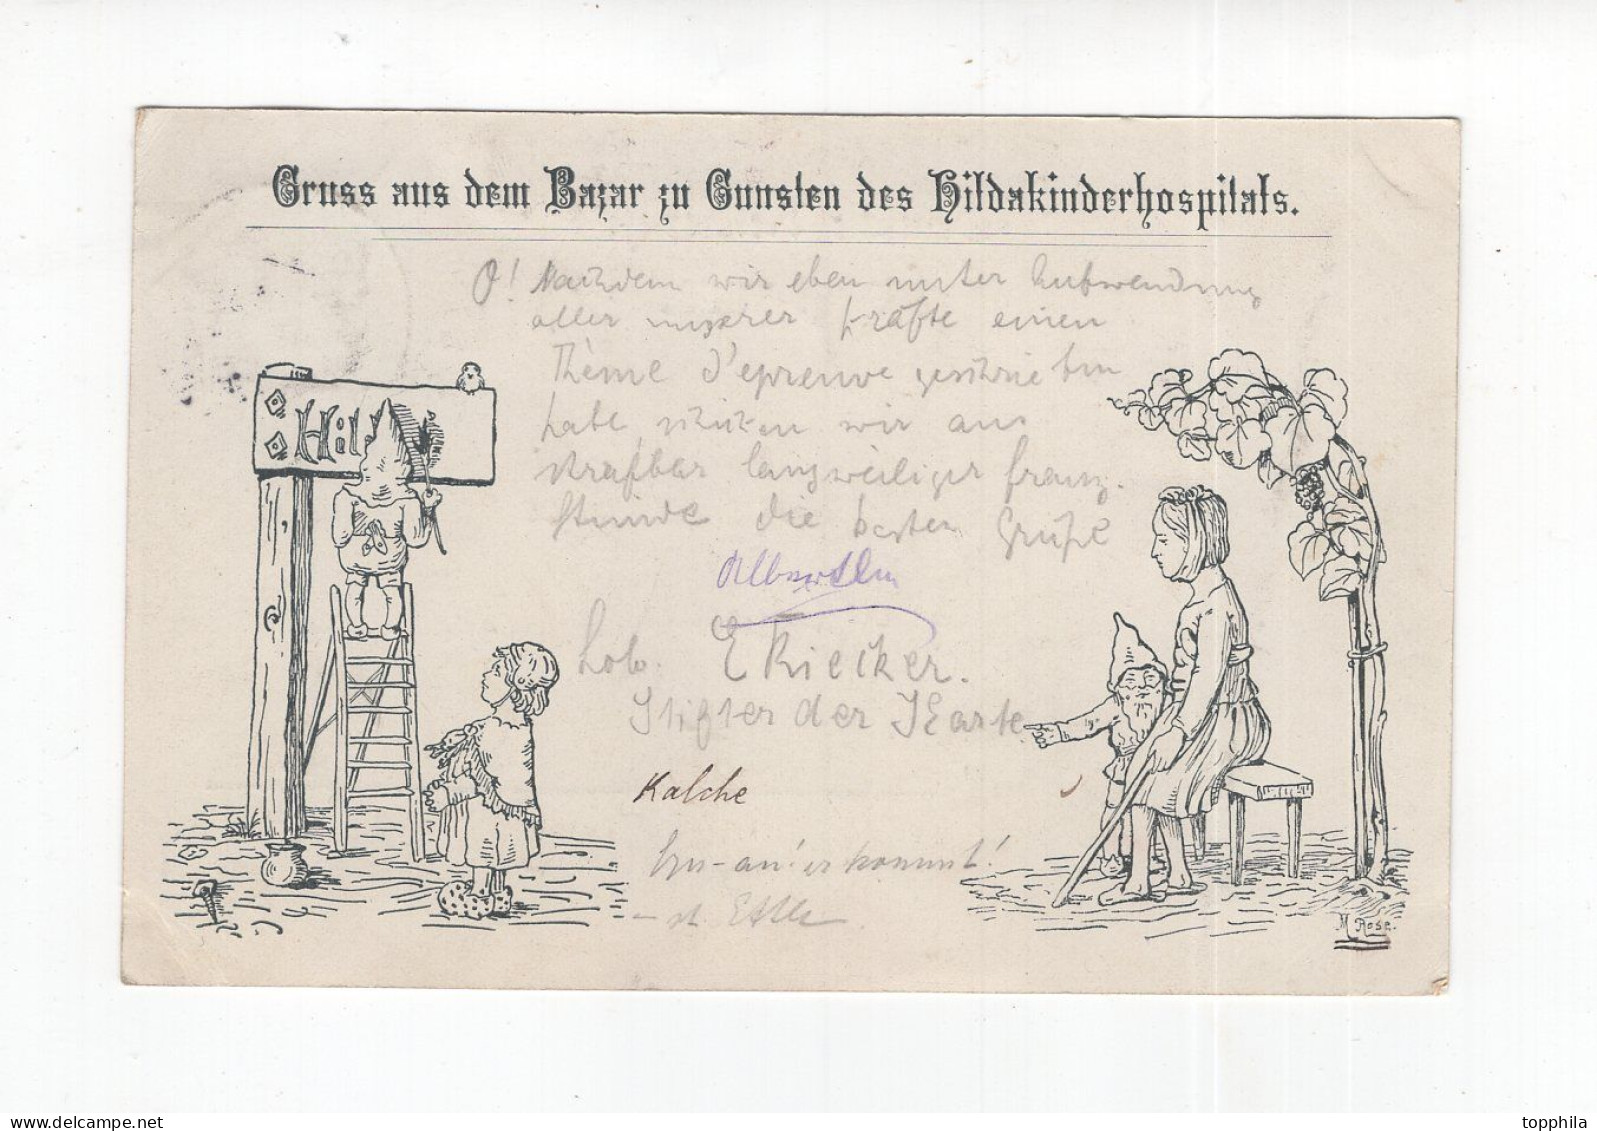 Gruss aus dem Bazar zu Gunsten des Hildakinderhospitals.
O! Nachdem wir eben unter Aufwendung
aller unserer Kräfte einen
Thème d'epreuve geschrieben
habe, schicken wir aus
strafbar langweiliger franz.
Stunde die besten Grüße
Hil
E Riecker.
Stifter der Karte
Kalche
an! er kommt!
M Rose.
topphila